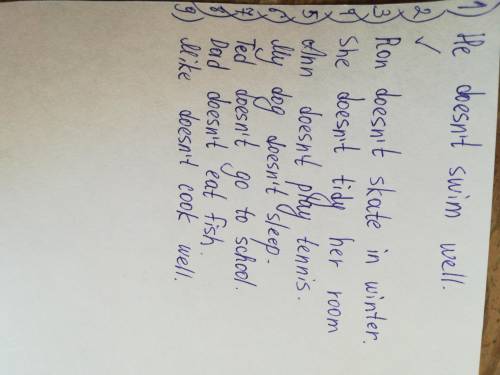 1) He doesn't swim well.
2) ✓
3) Ron doesn't skate in winter.
4) She doesn't tidy her room
5) Ann doesn't play tennis.
6) My dog doesn't sleep.
7) Ted doesn't go to school.
8) Dad doesn't eat fish.
9) Mike doesn't cook well.